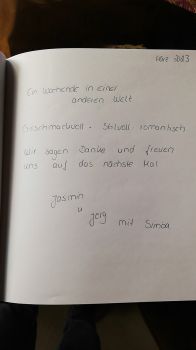 März 2023
Ein Wochende in einer
anderen Welt
Geschmackvoll - Stilvoll romantisch
Wir sagen Danke und freuen
uns auf das nächste Mal
Jasmin
u
Jörg mit Simba